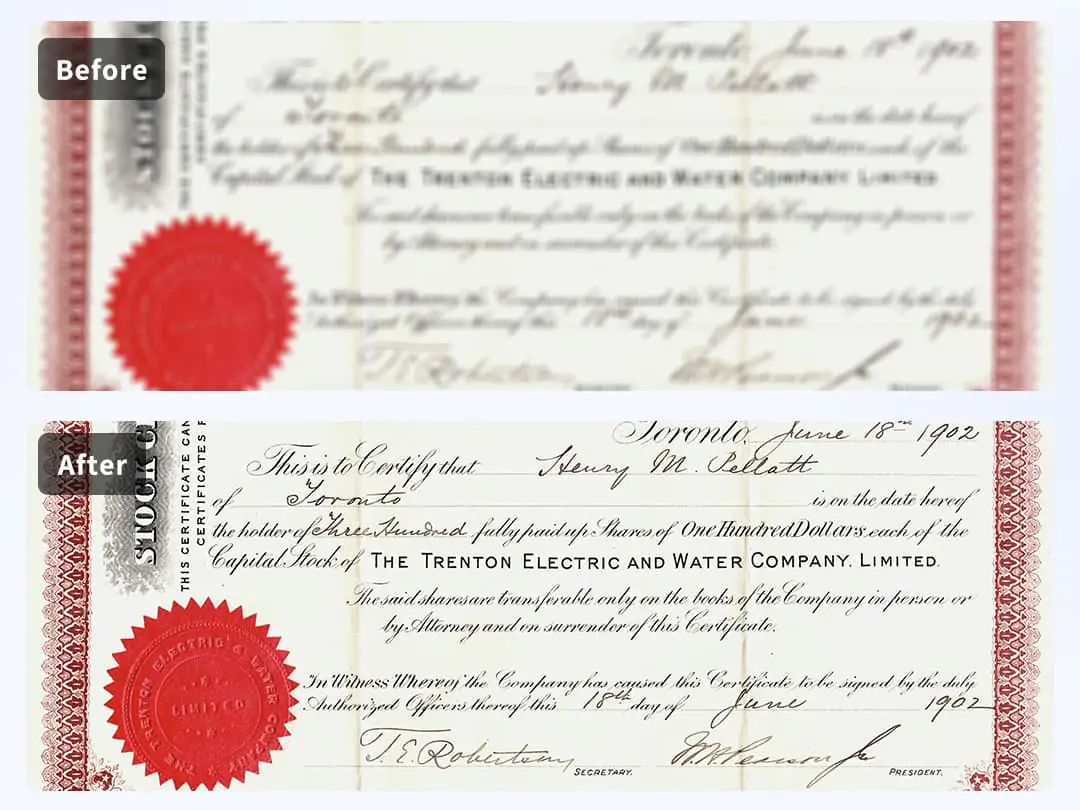 Before
Toronto, June 18th 1902
This is to Certify that Henry M. Pellatt
of Toronto is on the date hereof
the holder of Three Hundred fully paid up Shares of One Hundred Dollars each of the
Capital Stock of THE TRENTON ELECTRIC AND WATER COMPANY LIMITED
The said shares are transferable only on the books of the Company in person or
by Attorney and on surrender of this Certificate.
In Witness Whereof the Company has caused this Certificate to be signed by the duly
Authorized Officers thereof this 18th day of June 1902
T. E. Robertson
After
STOCK C
THIS CERTIFICATE CAN
CERTIFICATES F
Toronto, June 18th 1902
This is to Certify that Henry M. Pellatt
of Toronto is on the date hereof
the holder of Three Hundred fully paid up Shares of One Hundred Dollars each of the
Capital Stock of THE TRENTON ELECTRIC AND WATER COMPANY. LIMITED.
The said shares are transferable only on the books of the Company in person or
by Attorney and on surrender of this Certificate.
THE TRENTON ELECTRIC & WATER COMPANY
LIMITED
In Witness Whereof the Company has caused this Certificate to be signed by the duly
Authorized Officers thereof this 18th day of June 1902
T. E. Robertson SECRETARY. Pearson Jr PRESIDENT.